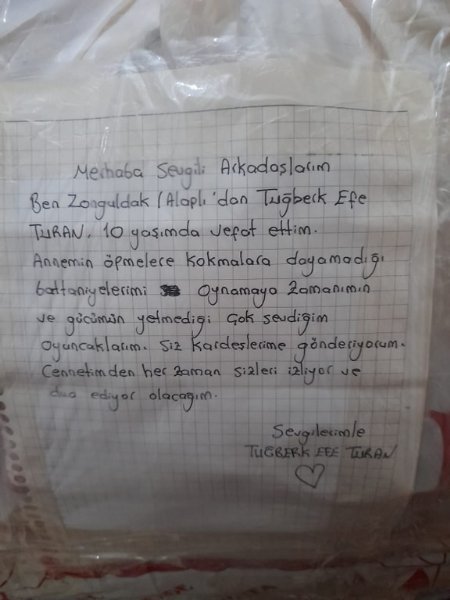 Merhaba Sevgili Arkadaşlarım
Ben Zonguldak (Alaplı'dan Tuğberk Efe
TURAN. 10 yaşımda vefat ettim.
Annemin öpmelere kokmalara dayamadığı
battaniyelerimi oynamaya zamanımın
ve gücümün yetmediği çok sevdiğim
oyuncaklarım. Siz kardeşlerime gönderiyorum.
Cennetimden her zaman sizleri izliyor ve
dua ediyor olacağım.
Sevgilerimle
TUĞBERK EFE TURAN